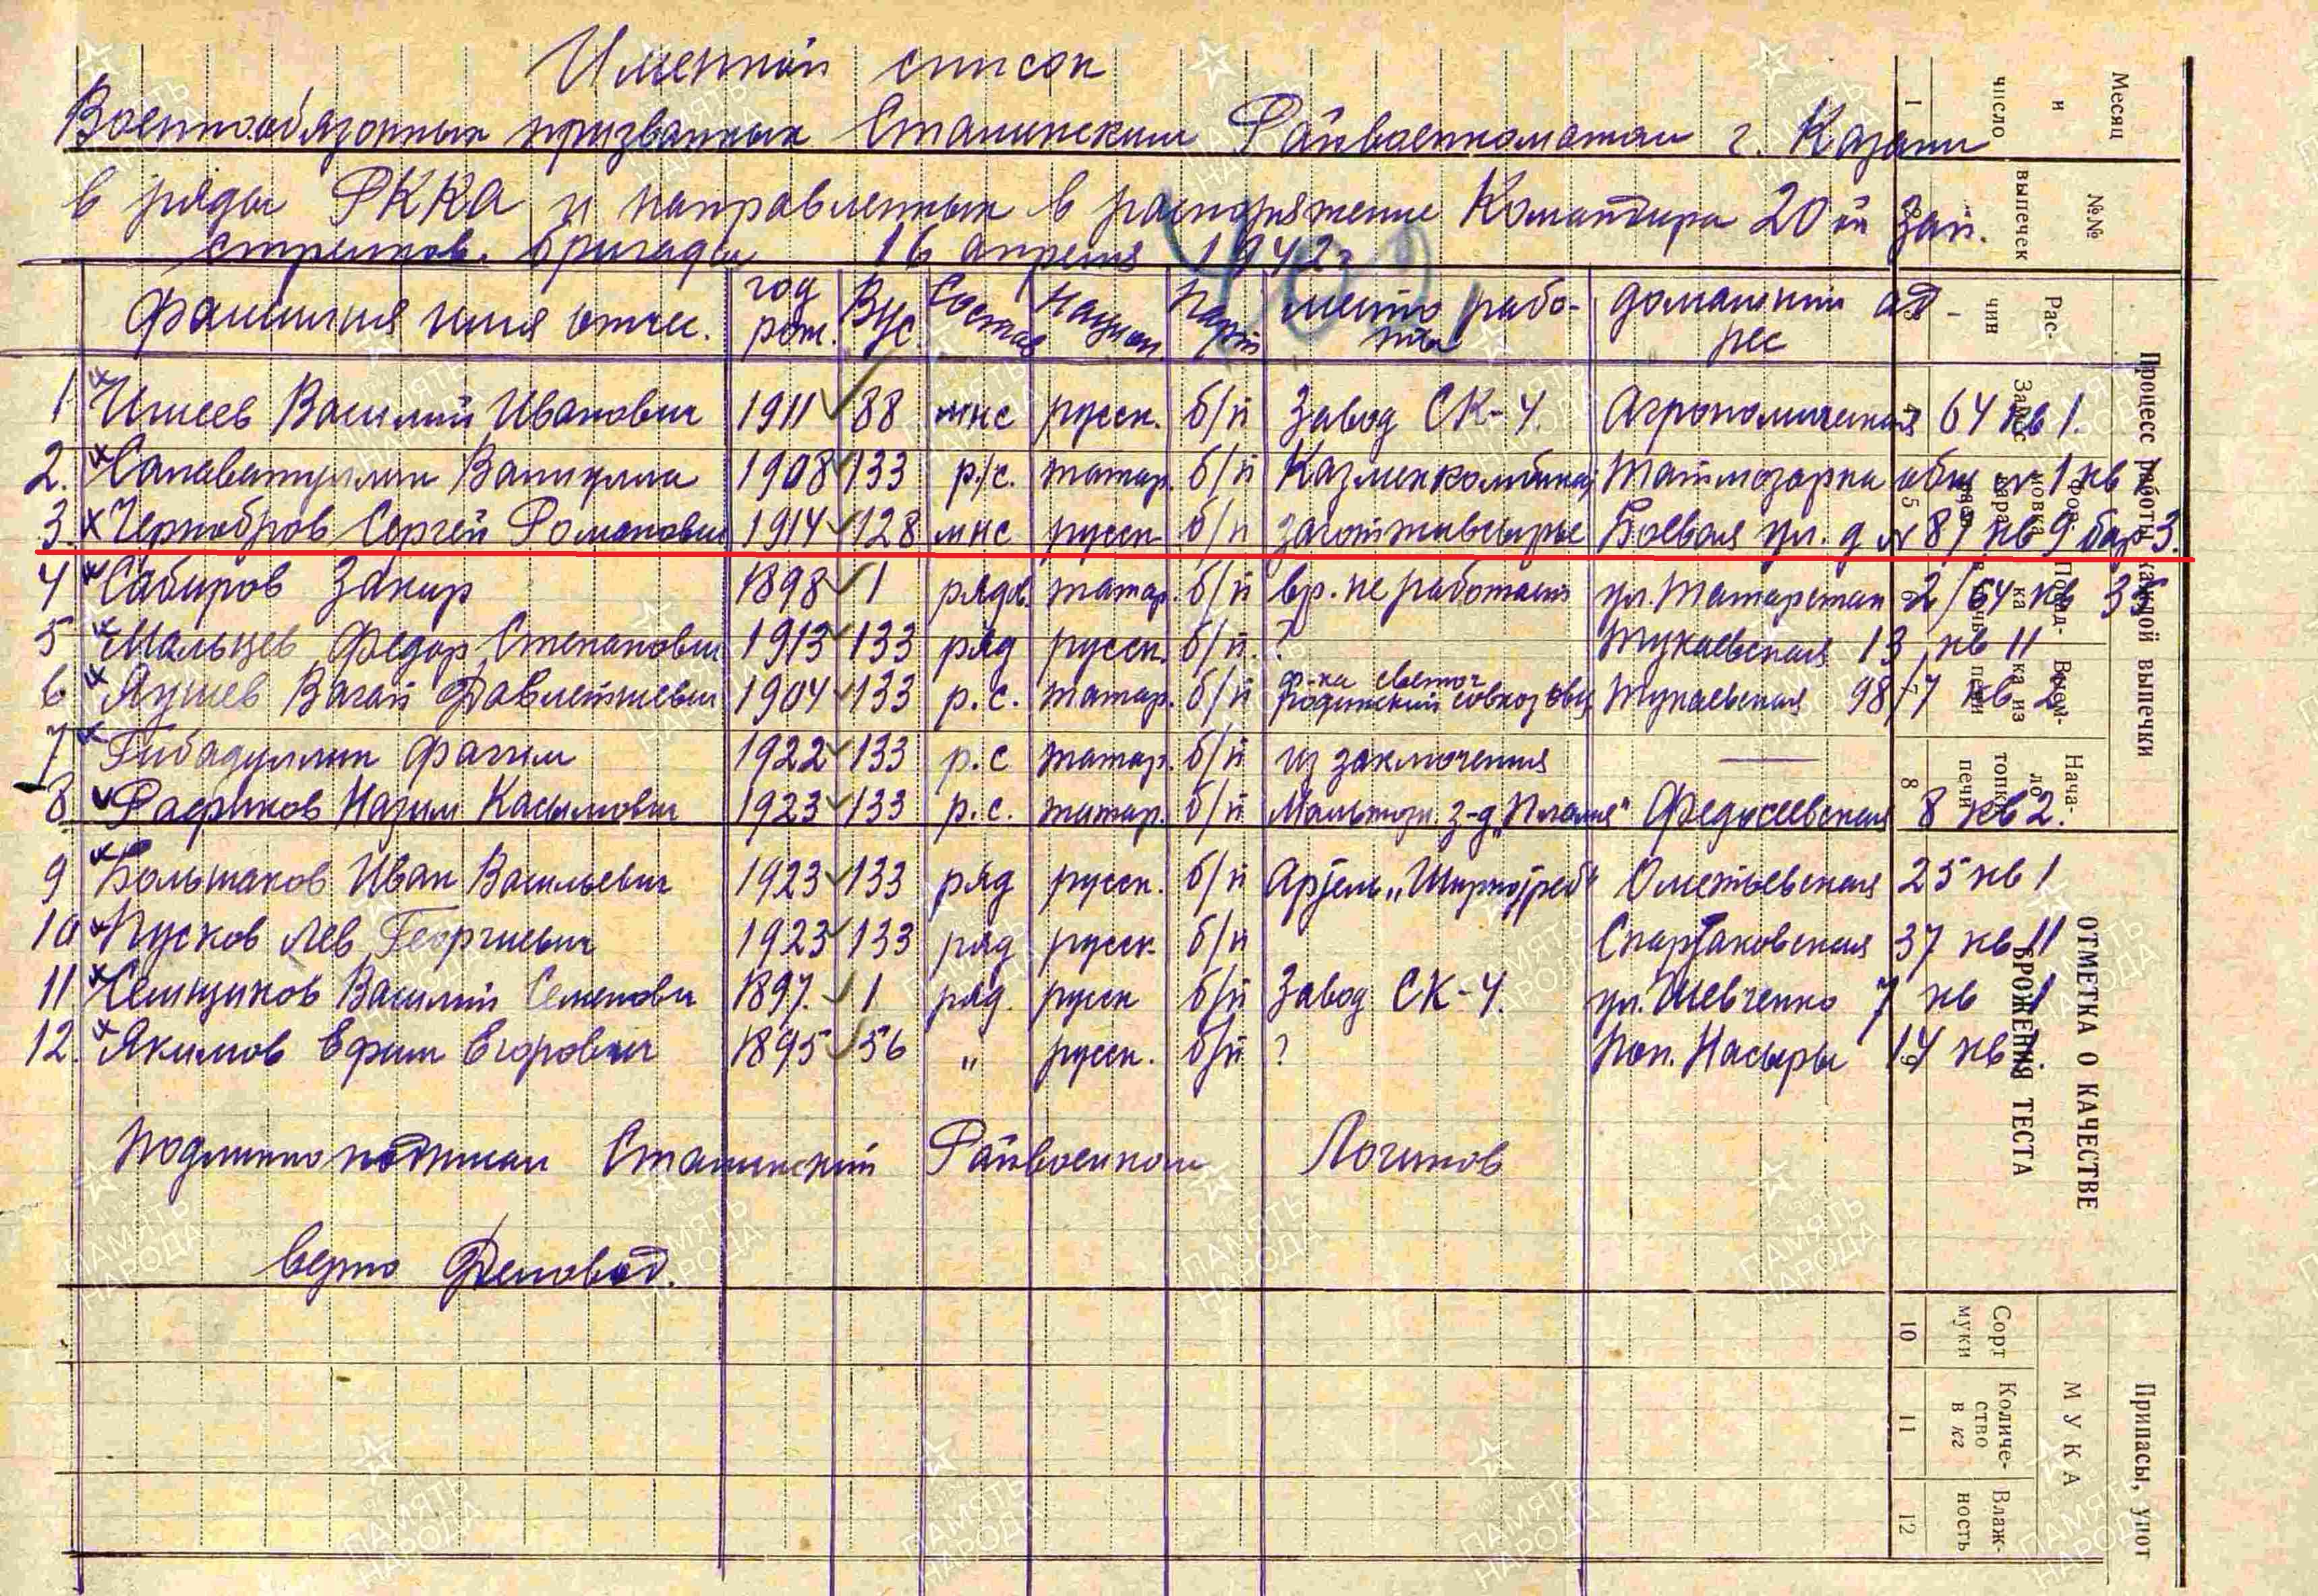 Именной список
Военнообязанных призванных Сталинским Райвоенкоматом г. Казани
в ряды РККА и направленных в распоряжение Командира 20 ой Зап.
стрелков. бригады 16 апреля 1942г
402
Фамилия имя отчес. год рож. Вус. Состав Национ. Парт место рабо-ты домашний ад-рес
1 Ижеев Василий Иванович 1911 88 мнс русск. б/п Завод СК-4. Агрономическая 64 кв 1.
2. Салаватуллин Валиулла 1908 133 р/с. татар. б/п Казмехкомбинат общ № 1 кв 1
3. Чернобров Сергей Романович 1914 128 мнс русск б/п Заготживсырье Боевая ул. д № 87 кв 9 бар 3.
4 Сабиров Закир 1898 1 рядов. татар. б/п вр. не работает ул. Татарстан 2/64 кв 35
5 Мальцев Федор Степанович 1913 133 ряд русск. б/п. ? Тукаевская 13 кв 11
6 Яушев Вагап Давлетшевич 1904 133 р.с. татар. б/п ф-ка светоч Тукаевская 98/7 кв 2
7 Гибадуллин Фагим 1922 133 р.с татар. б/п из заключения —
8 Рафиков Назим Касымович 1923 133 р.с. татар. б/п з-д Федосеевская 8 кв 2.
9 Большаков Иван Васильевич 1923 133 ряд русск. б/п Артель „Ширпотреб" Ометьевская 25 кв 1
10 Пусков Лев Георгиевич 1923 133 ряд русск. б/п Спартаковская 37 кв 11
11 Семщиков Василий Семенович 1897. 1 ряд. русск б/п Завод СК-4. ул. Шевченко 7 кв 1
12. Якимов Ефим Егорович 1895 56 „ русск. б/п ? Поп. Насыры 14 кв 1.
Подлинно подписал Сталинский Райвоенком Логинов
Верно Деловод.
Месяц и число
1
№№ выпечек
Процесс работы каждой выпечки
Рас-чин
3
4
5
Нача-ло топки печи
8
ОТМЕТКА О КАЧЕСТВЕ БРОЖЕНИЯ ТЕСТА
9
Припасы, упот
МУКА
Сорт муки
10
Количе-ство в кг
11
Влаж-ность
12
ПАМЯТЬ НАРОДА